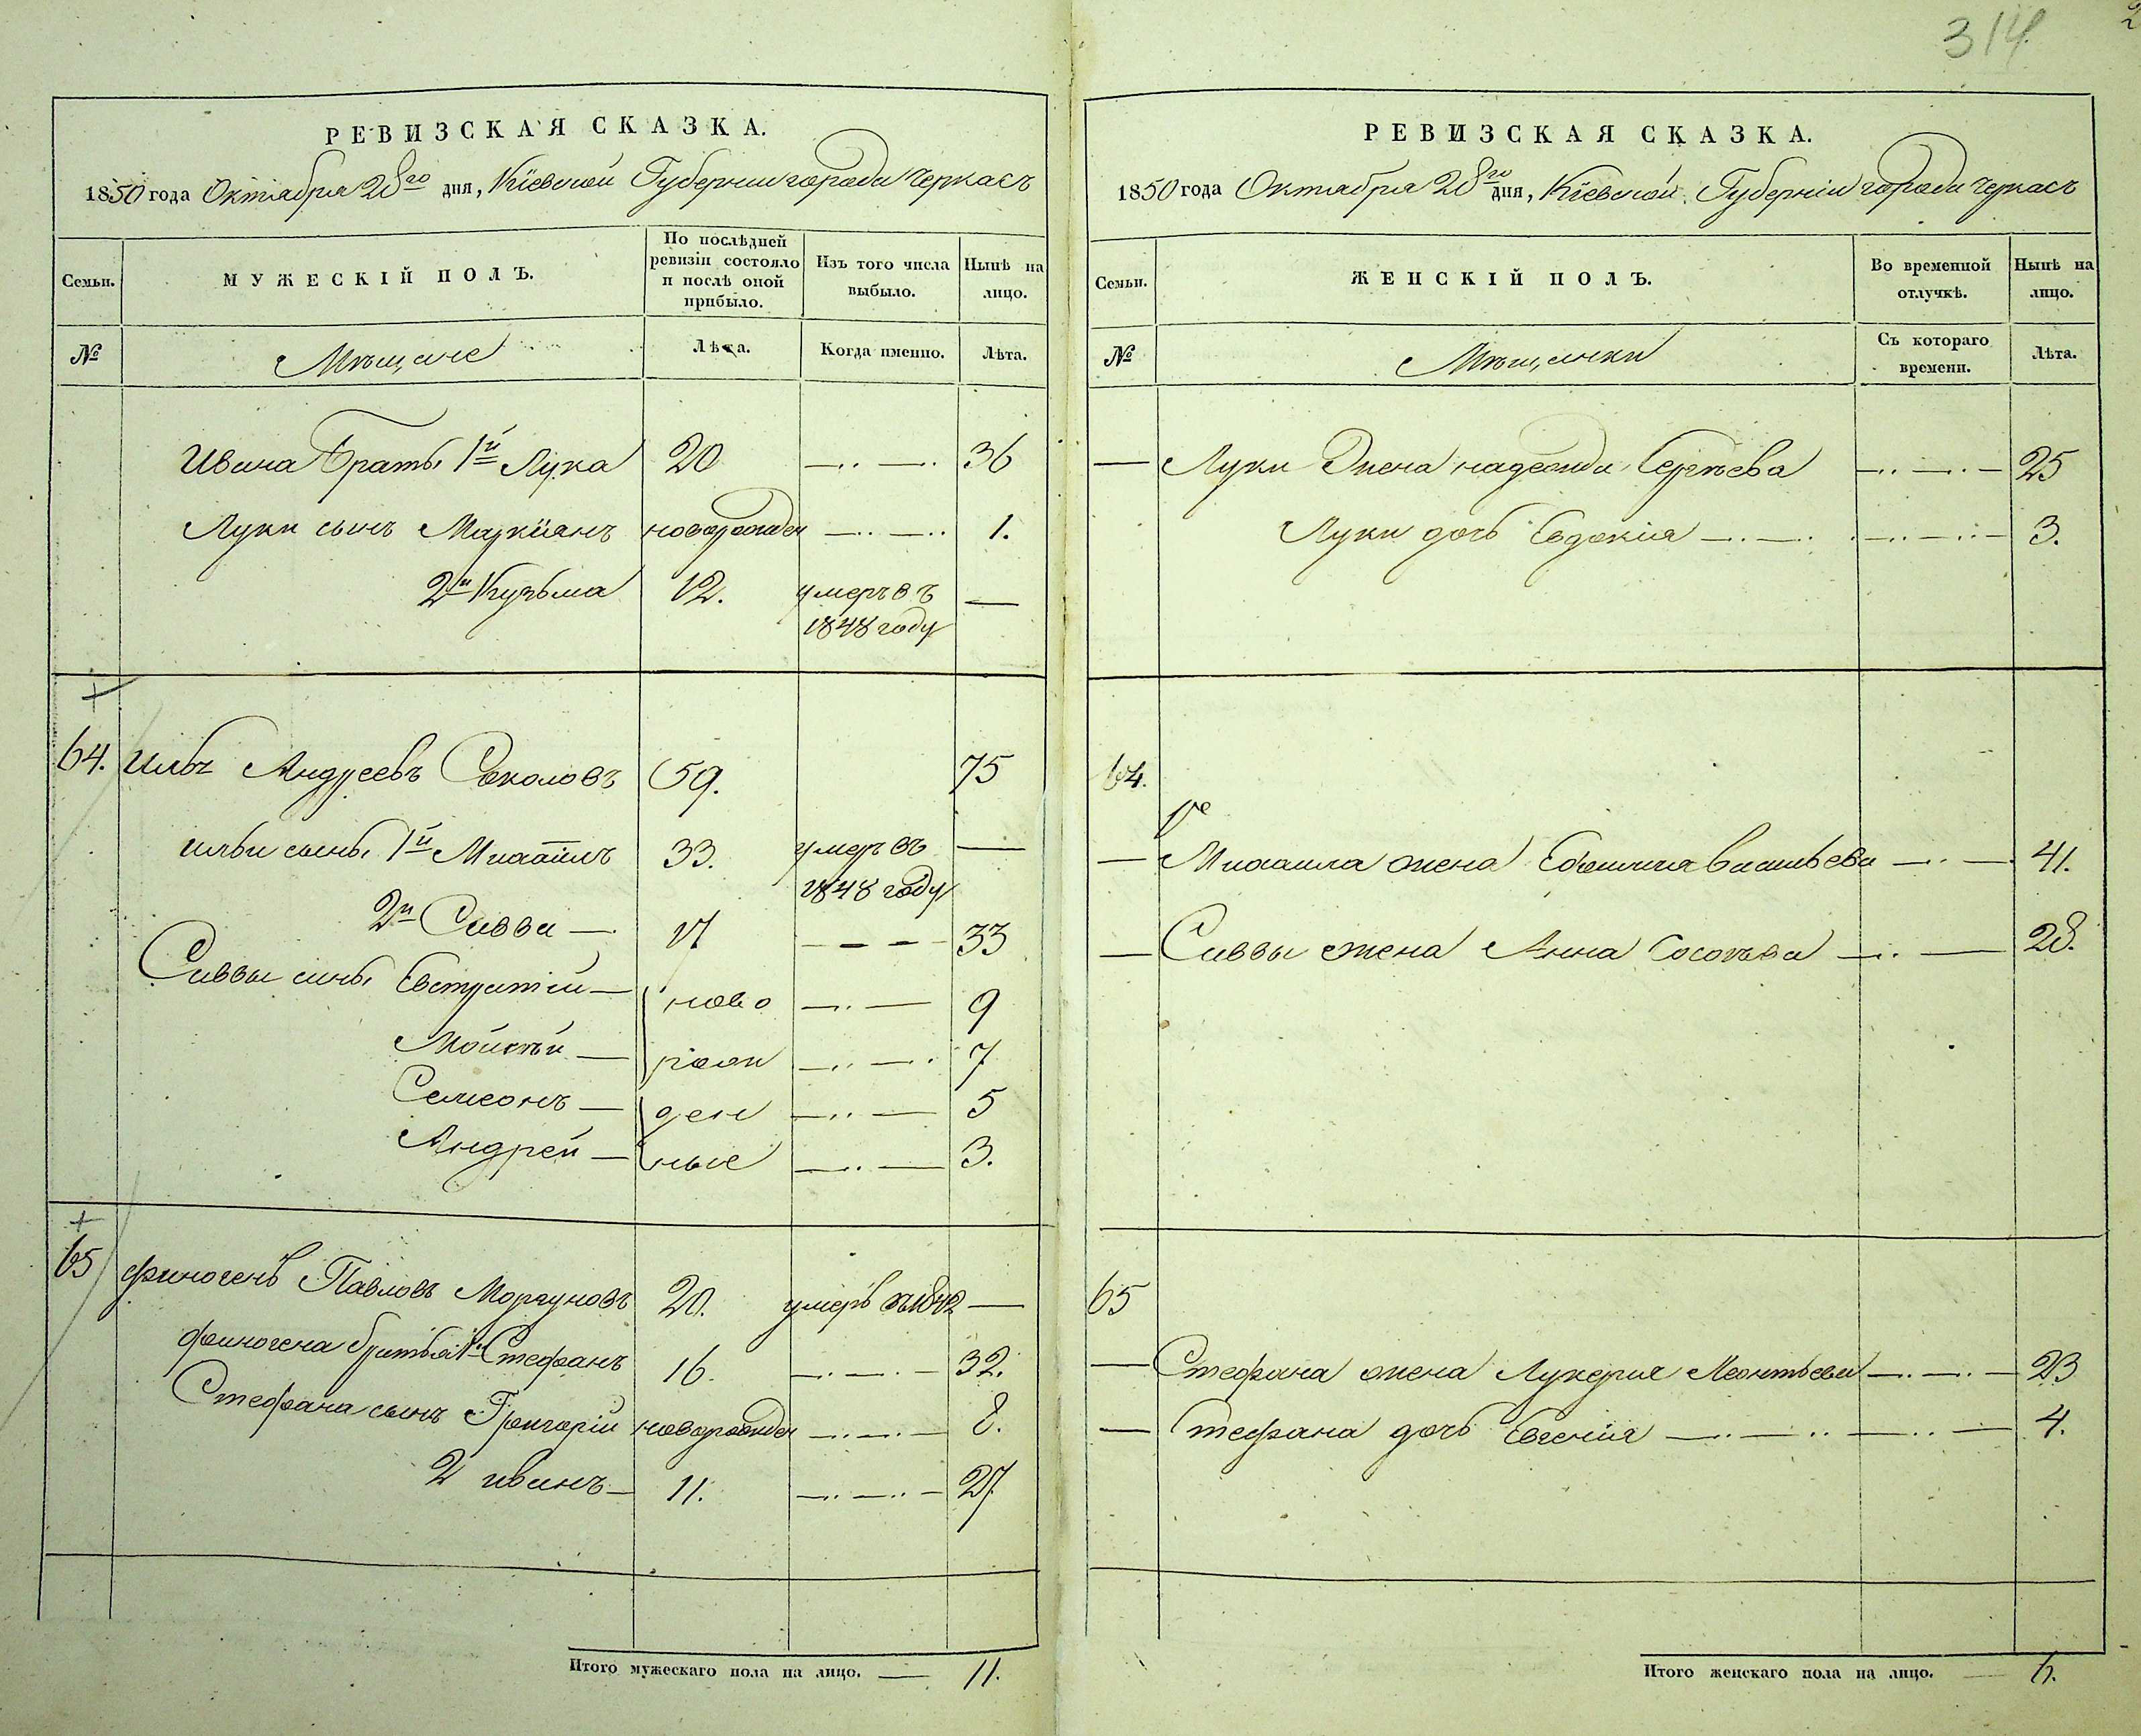 314
РЕВИЗСКАЯ СКАЗКА.
1850 года Октября 28го дня, Кіевской Губерніи города Черкасъ
Семьи.
МУЖЕСКІЙ ПОЛЪ.
По послѣдней ревизіи состояло и послѣ оной прибыло.
Изъ того числа выбыло.
Нынѣ на лицо.
№
Мѣщане
Лѣта.
Когда именно.
Лѣта.
Ивана братья 1й Лука 20 36
Луки сынъ Маркіянъ новорожден 1.
2й Кузьма 12. умеръ въ 1848 году —
64. Илья Андреевъ Соколовъ 59. 75
Ильи сыны 1й Михаилъ 33. умеръ въ 1848 году —
2й Савва — 17 33
Саввы сыны Евстратій — ново 9
Мойсей — рож 7
Симеонъ — ден 5
Андрей — ные 3.
65 Финогенъ Павловъ Моргуновъ 20. умеръ въ 1842 —
Финогена братья 1й Стефанъ 16. 32.
Стефана сынъ Григорій новорожден 8.
2 Иванъ — 11. 27
Итого мужескаго пола на лицо. — 11.
РЕВИЗСКАЯ СКАЗКА.
1850 года Октября 28го дня, Кіевской Губерніи города Черкасъ
Семьи.
ЖЕНСКІЙ ПОЛЪ.
Во временной отлучкѣ.
Нынѣ на лицо.
№
Мѣщанки
Съ котораго времени.
Лѣта.
— Луки жена Надежда Сергѣева 25
Луки дочь Евдокія 3.
64.
— Михаила жена Васильева 41.
— Саввы жена Анна 28.
65
— Стефана жена Лукерія Леонтьева 23
— Стефана дочь Евгенія 4.
Итого женскаго пола на лицо. — 6.